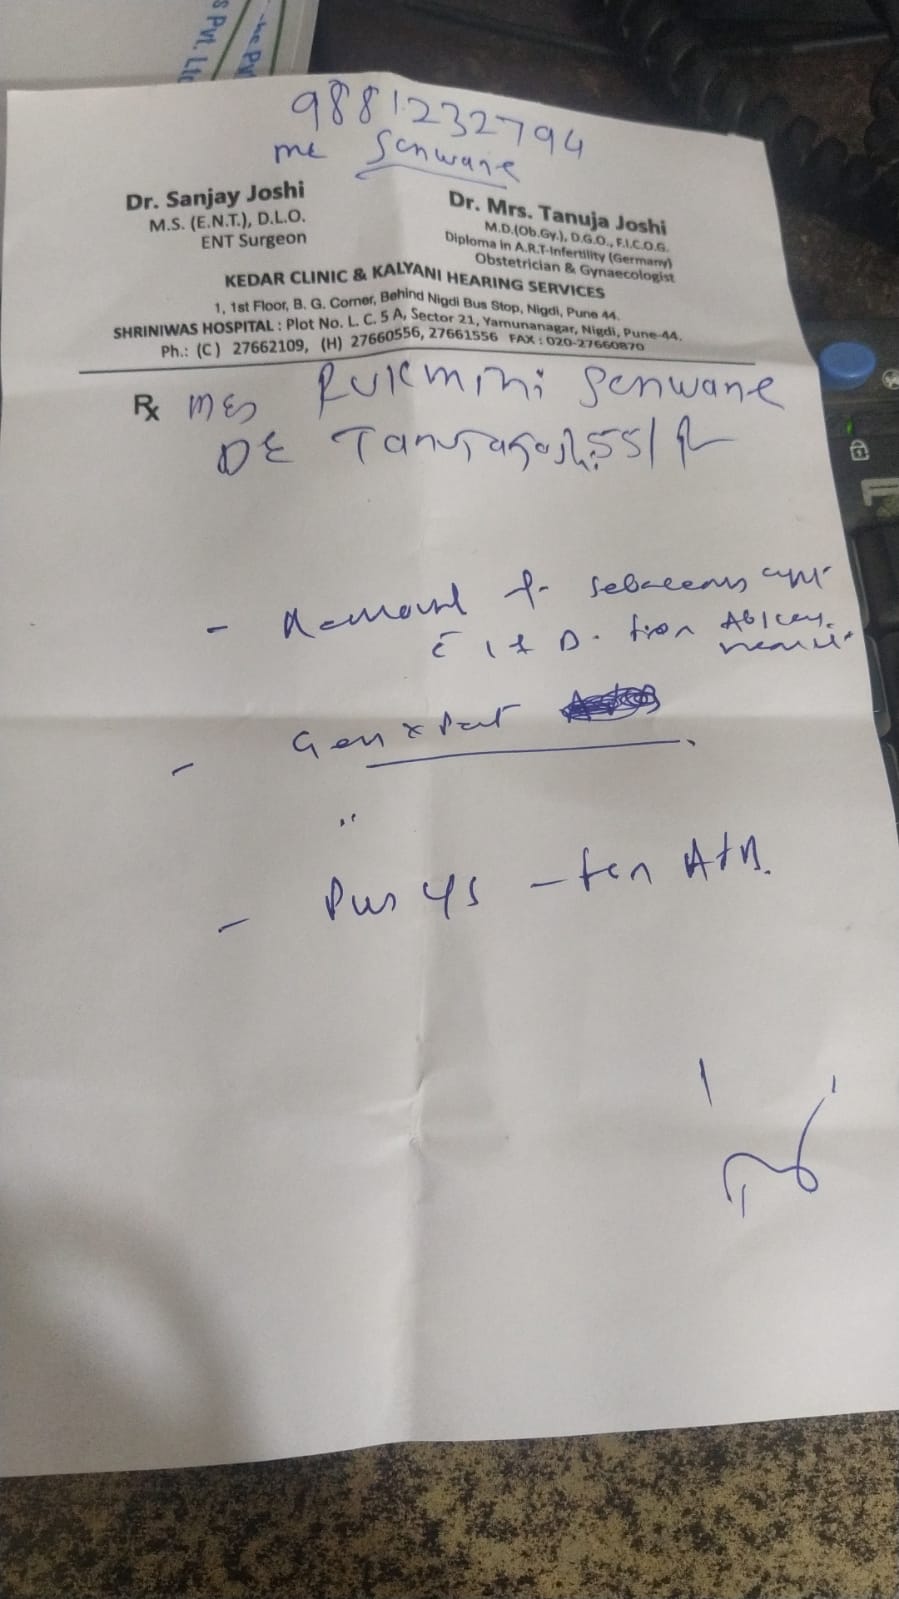 s Pvt. Ltd
9881232794
me Sonwane
Dr. Sanjay Joshi
M.S. (E.N.T.), D.L.O.
ENT Surgeon
Dr. Mrs. Tanuja Joshi
M.D.(Ob.Gy.), D.G.O., F.I.C.O.G.
Diploma in A.R.T-Infertility (Germany)
Obstetrician & Gynaecologist
KEDAR CLINIC & KALYANI HEARING SERVICES
1, 1st Floor, B. G. Corner, Behind Nigdi Bus Stop, Nigdi, Pune 44.
SHRINIWAS HOSPITAL : Plot No. L. C. 5 A, Sector 21, Yamunanagar, Nigdi, Pune-44.
Ph.: (C) 27662109, (H) 27660556, 27661556 FAX : 020-27660870
Rx Mrs Rukmini Sonwane
55/F
- Removal of sebaceous cyst
c̄ I & D. from Abscess
- Gen x Pert
- Pus c/s